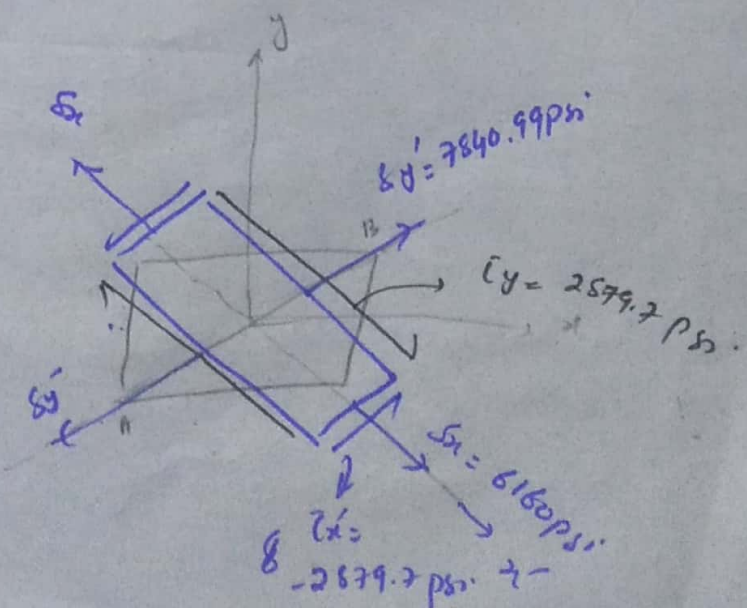 y
σx
σy' = 7840.99 psi
B
τy = 2579.7 psi.
x
σy'
A
σx = 6160 psi.
τx' =
-2579.7 psi.